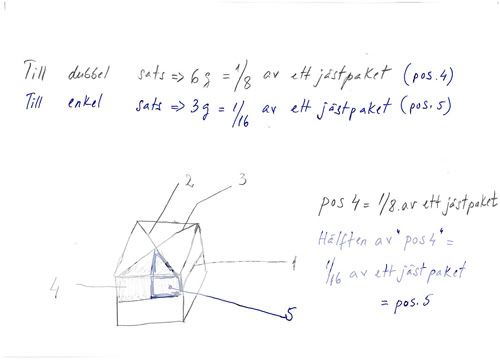 Till dubbel sats => 6 g = 1/8 av ett jästpaket (pos. 4)
Till enkel sats => 3 g = 1/16 av ett jästpaket (pos. 5)
2
3
pos 4 = 1/8 av ett jästpaket
Hälften av "pos 4" =
1
4
1/16 av ett jästpaket
= pos. 5
5